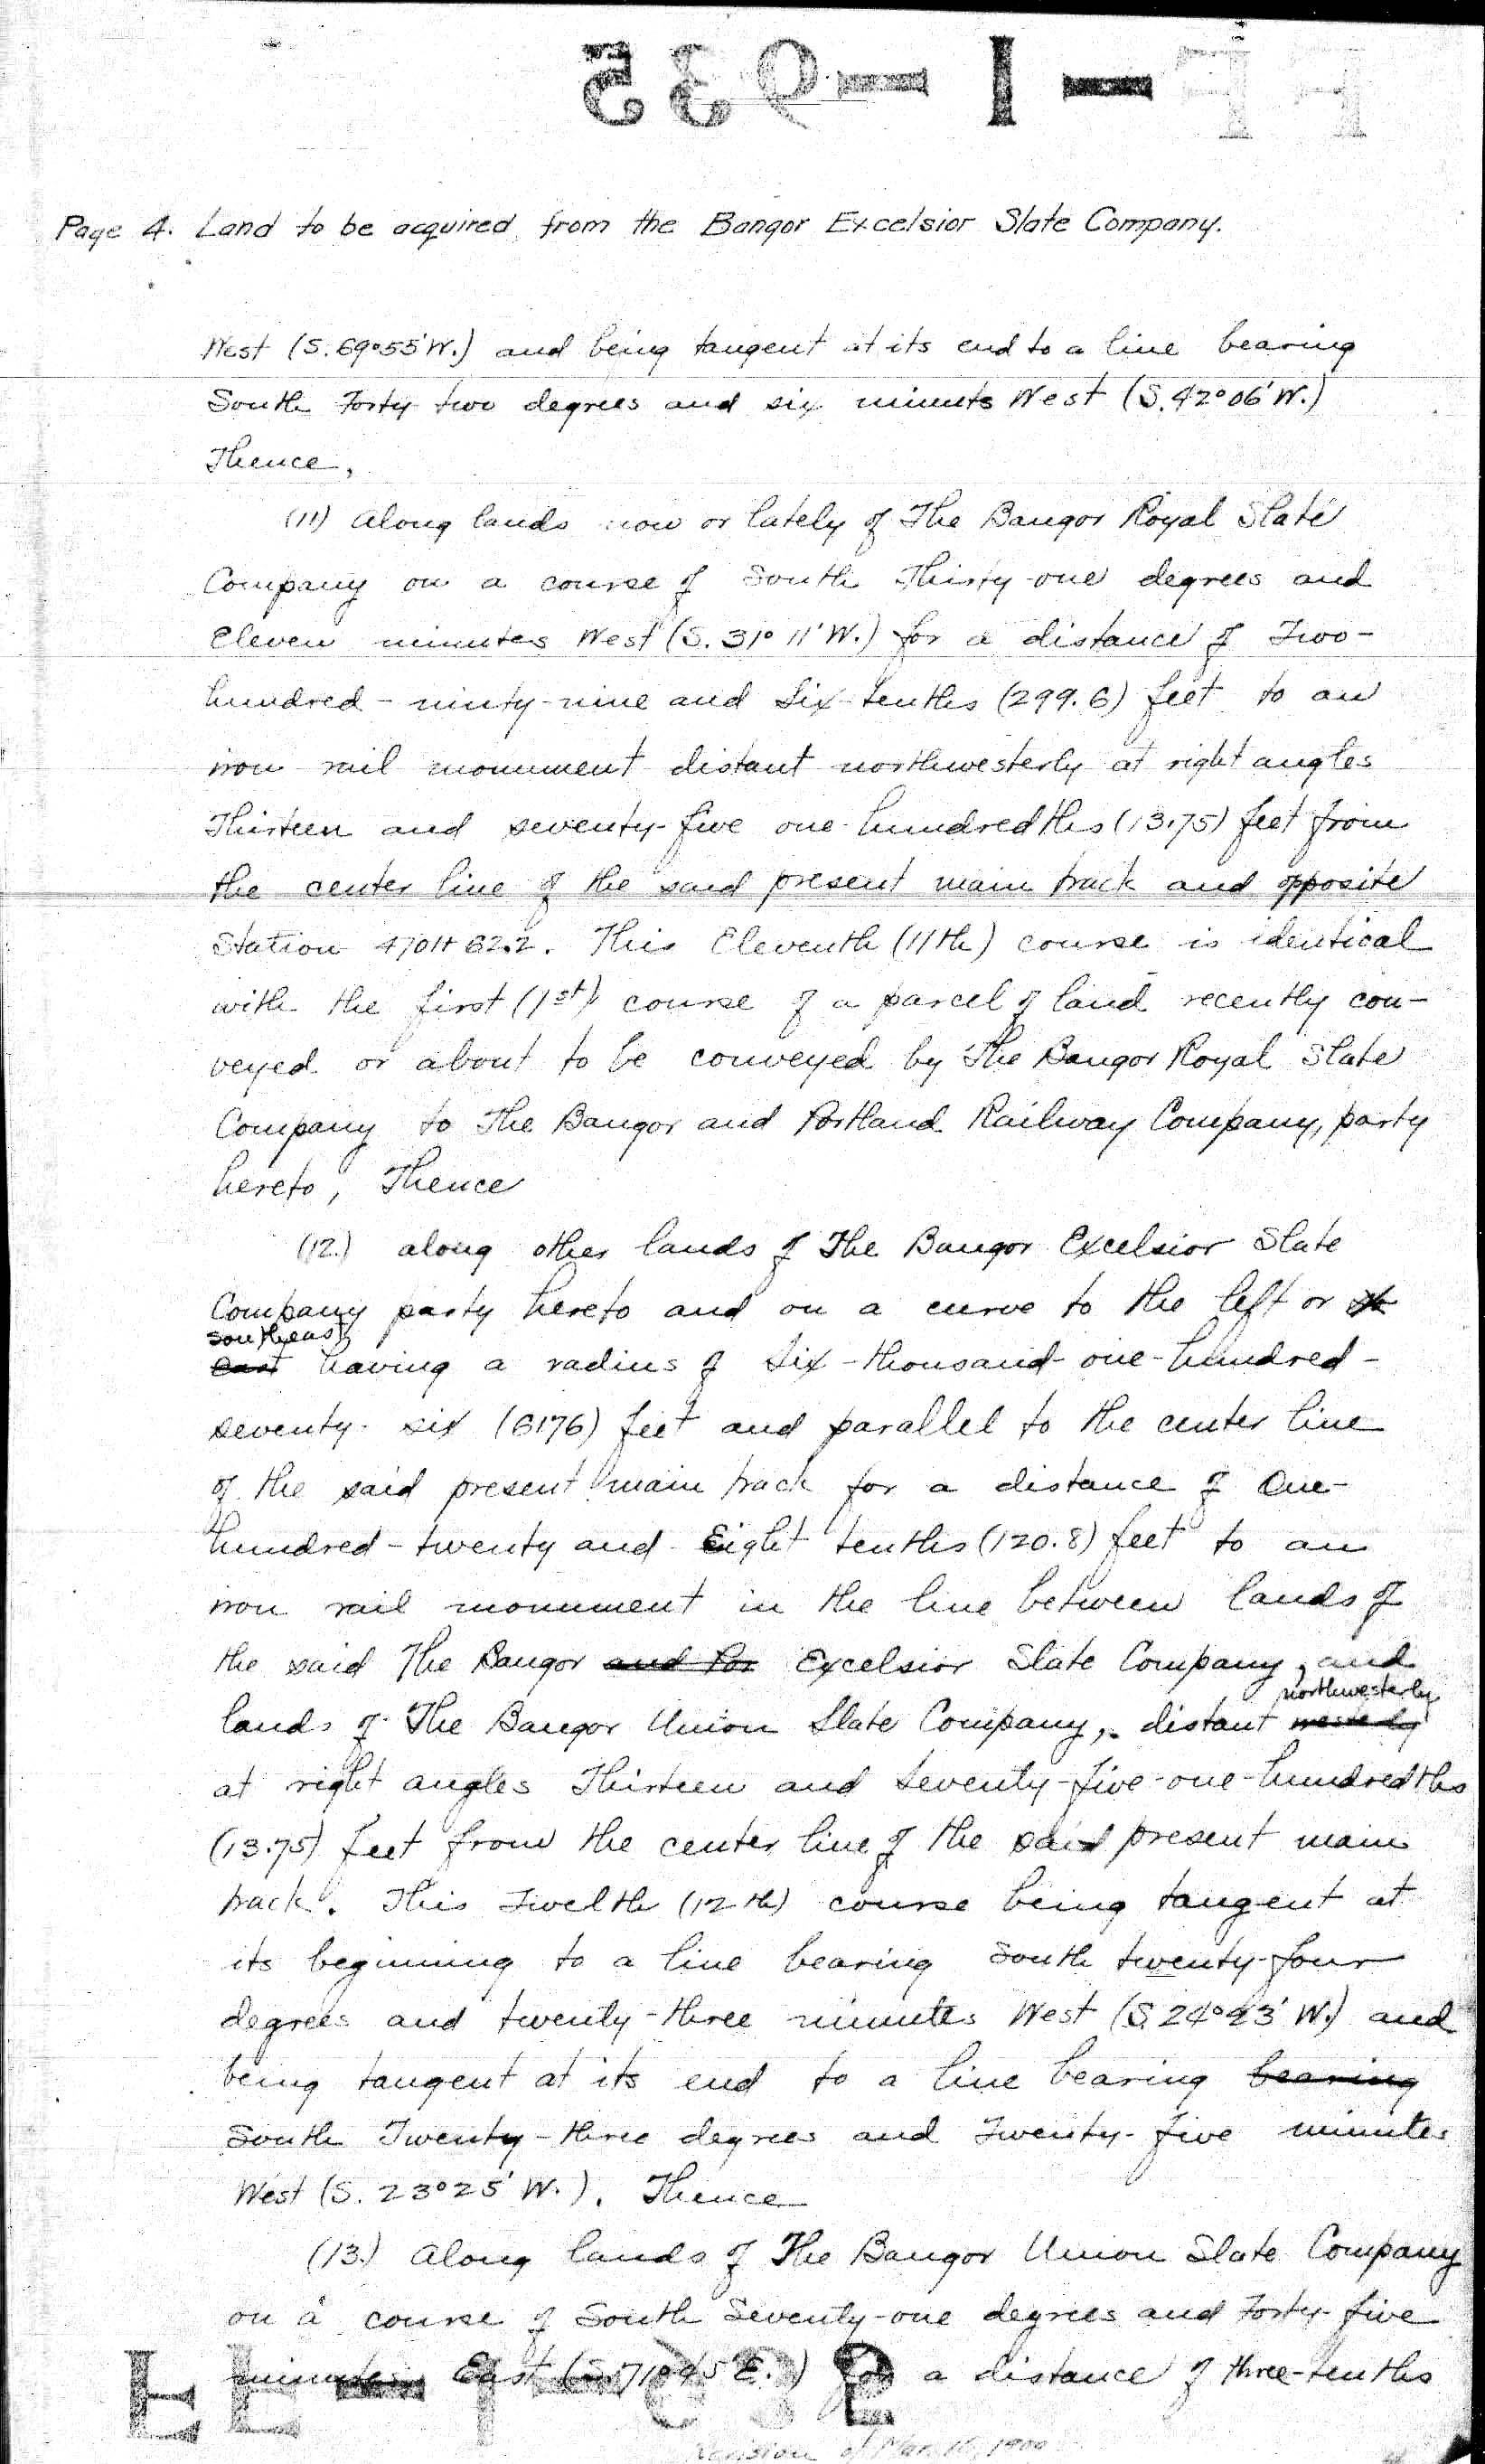 Page 4. Land to be acquired from the Bangor Excelsior Slate Company.
West (S. 69°55'W.) and being tangent at its end to a line bearing
South Forty two degrees and six minuts West (S. 42°06'W.)
Thence,
(11) Along lands now or lately of The Bangor Royal Slate
Company on a course of South Thirty-one degrees and
Eleven minutes West (S. 31° 11' W.) for a distance of Two-
hundred-ninty-nine and Six-tenths (299.6) feet to an
iron rail monument distant northwesterly at right angles
Thirteen and seventy-five one-hundredths (13.75) feet from
the center line of the said present main track and opposite
Station 4701+62.2. This Eleventh (11th) course is identical
with the first (1st) course of a parcel of land recently con-
veyed or about to be conveyed by The Bangor Royal Slate
Company to The Bangor and Portland Railway Company, party
hereto, Thence
(12.) along other lands of The Bangor Excelsior Slate
Company party hereto and on a curve to the left or
southeast
east having a radius of Six-thousand-one-hundred-
seventy-six (6176) feet and parallel to the center line
of the said present main track for a distance of One-
hundred-twenty and Eight tenths (120.8) feet to an
iron rail monument in the line between lands of
the said The Bangor and Por Excelsior Slate Company, and
northwesterly
lands of The Bangor Union Slate Company, distant westerly
at right angles Thirteen and Seventy-five-one-hundredths
(13.75) feet from the center line of the said present main
track. This Twelth (12th) course being tangent at
its beginning to a line bearing South twenty-four
degrees and twenty-three minutes West (S. 24°23' W.) and
being tangent at its end to a line bearing bearing
South Twenty-three degrees and Twenty-five minutes
West (S. 23°25' W.). Thence
(13.) Along lands of The Bangor Union Slate Company
on a course of South Seventy-one degrees and Forty-five
minutes East (S. 71°45' E.) for a distance of three-tenths